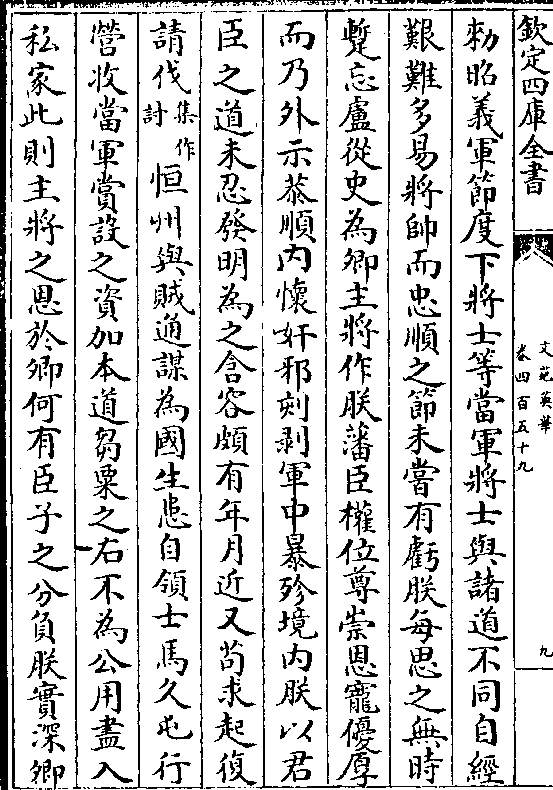 欽定四庫全書
文苑英華
卷四百五十九
九
勅昭義軍節度下將士等當軍將士與諸道不同自經
艱難多易將帥而忠順之節未嘗有虧朕每思之無時
蹔忘盧從史為卿主將作朕藩臣權位尊崇恩寵優厚
而乃外示恭順内懷奸邪刻剥軍中暴殄境内朕以君
臣之道未忍發明為之含容頗有年月近又苟求起復
請伐集作討恒州與賊通謀為國生患自領士馬久屯行
營收當軍賞設之資加本道芻粟之右不為公用盡入
私家此則主將之恩於卿何有臣子之分負朕實深卿